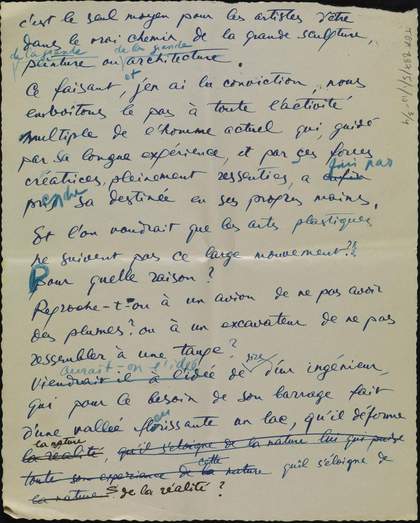 c'est le seul moyen pour les artistes d'être
dans le vrai chemin, de la grande sculpture,
de la grande de la grande
peinture ou architecture.
et
Ce faisant, j'en ai la conviction, nous
emboitons le pas à toute l'activité
multiple de l'homme actuel qui, guidé
par sa longue expérience, et par ses forces
créatrices, pleinement ressenties, a enfin
fini par
prendre sa destinée en ses propres mains.
Et l'on voudrait que les arts plastiques
ne suivent pas ce large mouvement?!
Pour quelle raison?
Reproche-t-on à un avion de ne pas avoir
des plumes? ou à un excavateur de ne pas
ressembler à une taupe?
aurait-on l'idée
Viendrait-il à l'idée de dire d'un ingénieur,
qui pour le besoin de son barrage fait
d'une vallée florissante un lac, qu'il déforme
la nature
la réalité, qu'il s'éloigne de la nature lui qui puise
toute son experience de la cette nature qu'il s'éloigne de
la nature de la réalité?